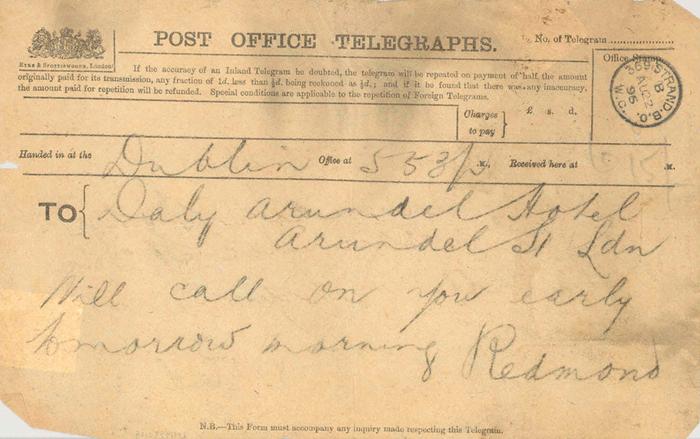 POST OFFICE TELEGRAPHS.
No. of Telegram
EYRE & SPOTTISWOODE, LONDON
If the accuracy of an Inland Telegram be doubted, the telegram will be repeated on payment of half the amount
originally paid for its transmission, any fraction of 1d. less than ½d. being reckoned as ½d.; and if it be found that there was any inaccuracy,
the amount paid for repetition will be refunded. Special conditions are applicable to the repetition of Foreign Telegrams.
Office Stamp
369 STRAND B.O. W.C.
B
AU 2
95
Charges to pay
£ s. d.
Handed in at the Dublin Office at 5 53 p .M. Received here at .M.
TO Daly Arundel Hotel
Arundel St Ldn
Will call on you early
tomorrow morning Redmond
N.B.—This Form must accompany any inquiry made respecting this Telegram.